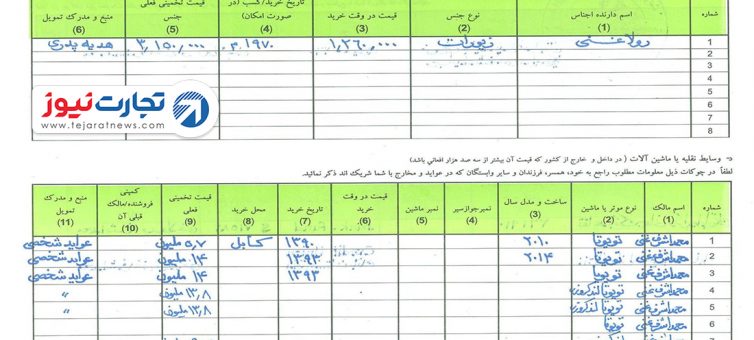 شماره | اسم دارنده اجناس (1) | نوع جنس (2) | قیمت در وقت خرید (3) | تاریخ خرید/کسب (در صورت امکان) (4) | قیمت تخمینی فعلی جنس (5) | منبع و مدرک تمویل (6)
1 | رولا غنی | زیورات | ۱,۲۶۰,۰۰۰ | ۱۹۷۰ م | ۳,۱۵۰,۰۰۰ | هدیه پدری
2
3
4
5
6
7
8
تجارت نیوز
www.tejaratnews.com
د- وسایط نقلیه یا ماشین آلات ( در داخل و خارج از کشور که قیمت آن بیشتر از سه صد هزار افغانی باشد)
لطفاً در چوکات ذیل معلومات مطلوب راجع به خود، همسر، فرزندان و سایر وابستگان که در عواید و مخارج با شما شریک اند ذکر نمائید.
شماره | اسم مالک (1) | نوع موتر یا ماشین (2) | ساخت و مدل سال (3) | نمبر جوازسیر (4) | نمبر ماشین (5) | قیمت در وقت خرید (6) | تاریخ خرید (7) | محل خرید (8) | قیمت تخمینی فعلی (9) | کمپنی فروشنده/مالک قبلی آن (10) | منبع و مدرک تمویل (11)
1 | محمد اشرف غنی | تویوتا | ۲۰۱۰ | ۱۳۹۰ | کابل | ۵,۷ ملیون | عواید شخصی
2 | محمد اشرف غنی | تویوتا | ۲۰۱۴ | ۱۳۹۳ | ۱۴ ملیون | عواید شخصی
3 | محمد اشرف غنی | تویوتا | ۱۳۹۳ | ۱۴ ملیون | عواید شخصی
4 | محمد اشرف غنی | تویوتا لندکروزر | ۱۳,۸ ملیون | "
5 | محمد اشرف غنی | تویوتا لندکروزر | ۱۳,۸ ملیون | "
6 | محمد اشرف غنی | تویوتا
7 | محمد اشرف غنی